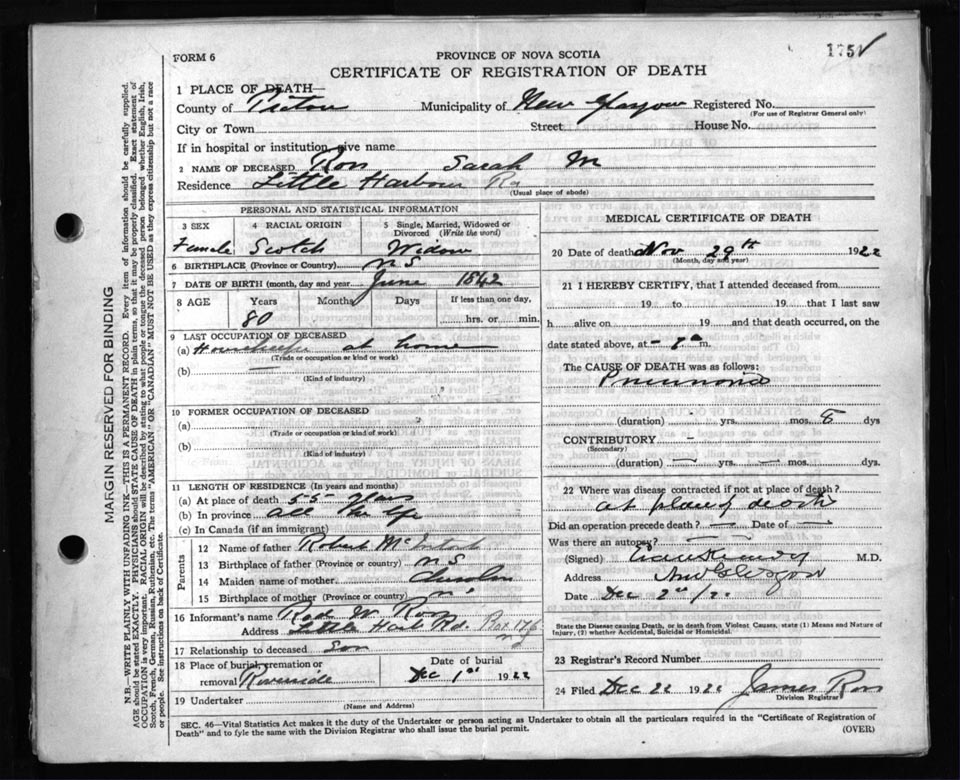 175
FORM 6
PROVINCE OF NOVA SCOTIA
CERTIFICATE OF REGISTRATION OF DEATH
1 PLACE OF DEATH—
County of Pictou Municipality of New Glasgow Registered No.
(For use of Registrar General only)
City or Town Street House No.
If in hospital or institution, give name
2 NAME OF DECEASED Ross Sarah M
Residence Little Harbour Rd
(Usual place of abode)
PERSONAL AND STATISTICAL INFORMATION
3 SEX
Female
4 RACIAL ORIGIN
Scotch
5 Single, Married, Widowed or Divorced (Write the word)
Widow
6 BIRTHPLACE (Province or Country) N S
7 DATE OF BIRTH (month, day and year) June 1842
8 AGE Years Months Days If less than one day,
80 hrs. or min.
9 LAST OCCUPATION OF DECEASED
(a) at home
(Trade or occupation or kind or work)
(b)
(Kind of industry)
10 FORMER OCCUPATION OF DECEASED
(a)
(Trade or occupation or kind of work)
(b)
(Kind of industry)
11 LENGTH OF RESIDENCE (In years and months)
(a) At place of death 55 years
(b) In province all her life
(c) In Canada (if an immigrant)
Parents
12 Name of father Robert McIntosh
13 Birthplace of father (Province or country) N S
14 Maiden name of mother
15 Birthplace of mother (Province or country)
16 Informant's name Rod W Ross
Address Little Harb Rd. Box 176
17 Relationship to deceased Son
18 Place of burial, cremation or removal Riverside
Date of burial
Dec 1st 1922
19 Undertaker
(Name and Address)
MEDICAL CERTIFICATE OF DEATH
20 Date of death Nov 29th 1922
(Month, day and year)
21 I HEREBY CERTIFY, that I attended deceased from
19 to 19 that I last saw
h alive on 19 and that death occurred, on the
date stated above, at m.
The CAUSE OF DEATH was as follows:
Pneumonia
(duration) yrs. mos. dys
CONTRIBUTORY —
(Secondary)
(duration) — yrs. — mos. dys.
22 Where was disease contracted if not at place of death?
at place of death
Did an operation precede death? — Date of —
Was there an autopsy? —
(Signed) Evan Kennedy M.D.
Address New Glasgow
Date Dec
State the Disease causing Death, or in death from Violent Causes, state (1) Means and Nature of
Injury, (2) whether Accidental, Suicidal or Homicidal.
23 Registrar's Record Number
24 Filed Dec 22 1922 James Ross
Division Registrar
SEC. 46—Vital Statistics Act makes it the duty of the Undertaker or person acting as Undertaker to obtain all the particulars required in the "Certificate of Registration of
Death" and to fyle the same with the Division Registrar who shall issue the burial permit.
(OVER)
MARGIN RESERVED FOR BINDING
N.B.—WRITE PLAINLY WITH UNFADING INK—THIS IS A PERMANENT RECORD. Every item of information should be carefully supplied.
AGE should be stated EXACTLY. PHYSICIANS should STATE CAUSE OF DEATH in plain terms, so that it may be properly classified. Exact statement of
OCCUPATION is very important. RACIAL ORIGIN will be described by stating to what people or tongue the deceased person belonged whether English, Irish,
Scotch, French, German, Russian, Ruthenian, etc. The terms "AMERICAN" OR "CANADIAN" MUST NOT BE USED as they express citizenship but not a race
or people. See instructions on back of Certificate.